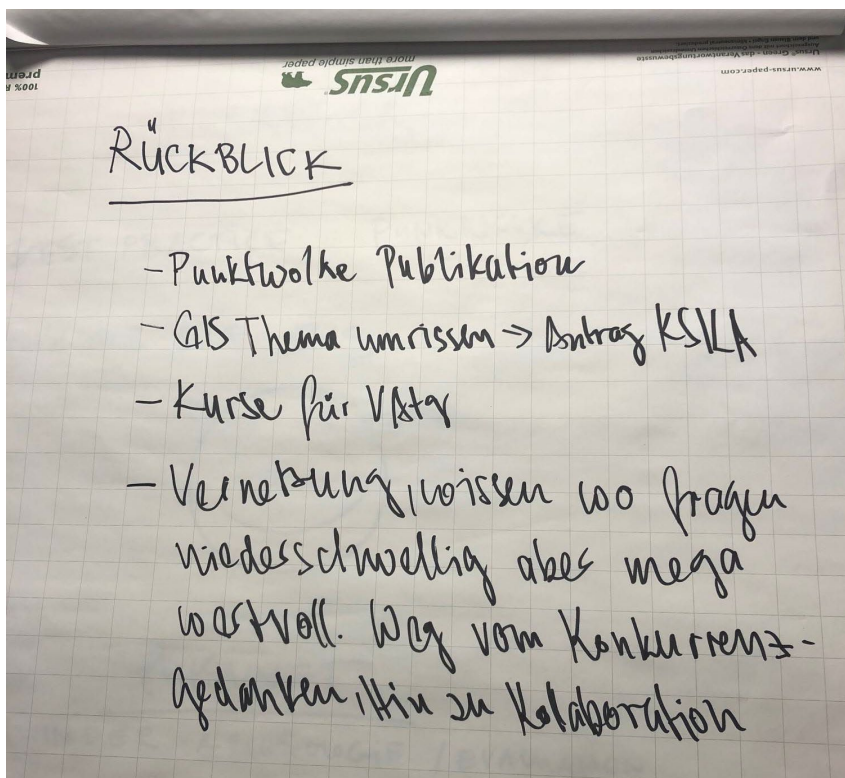 100% R
prem
URSUS®
more than simple paper
www.ursus-paper.com
Ursus® Green - das Verantwortungsbewusste
RÜCKBLICK
- Punktwolke Publikation
- GIS Thema umrissen → Antrag KSKA
- Kurse für VAtg
- Vernetzung, wissen wo fragen
niederschwellig aber mega
wertvoll. Weg vom Konkurrenz-
gedanken, Hin zu Kolaboration